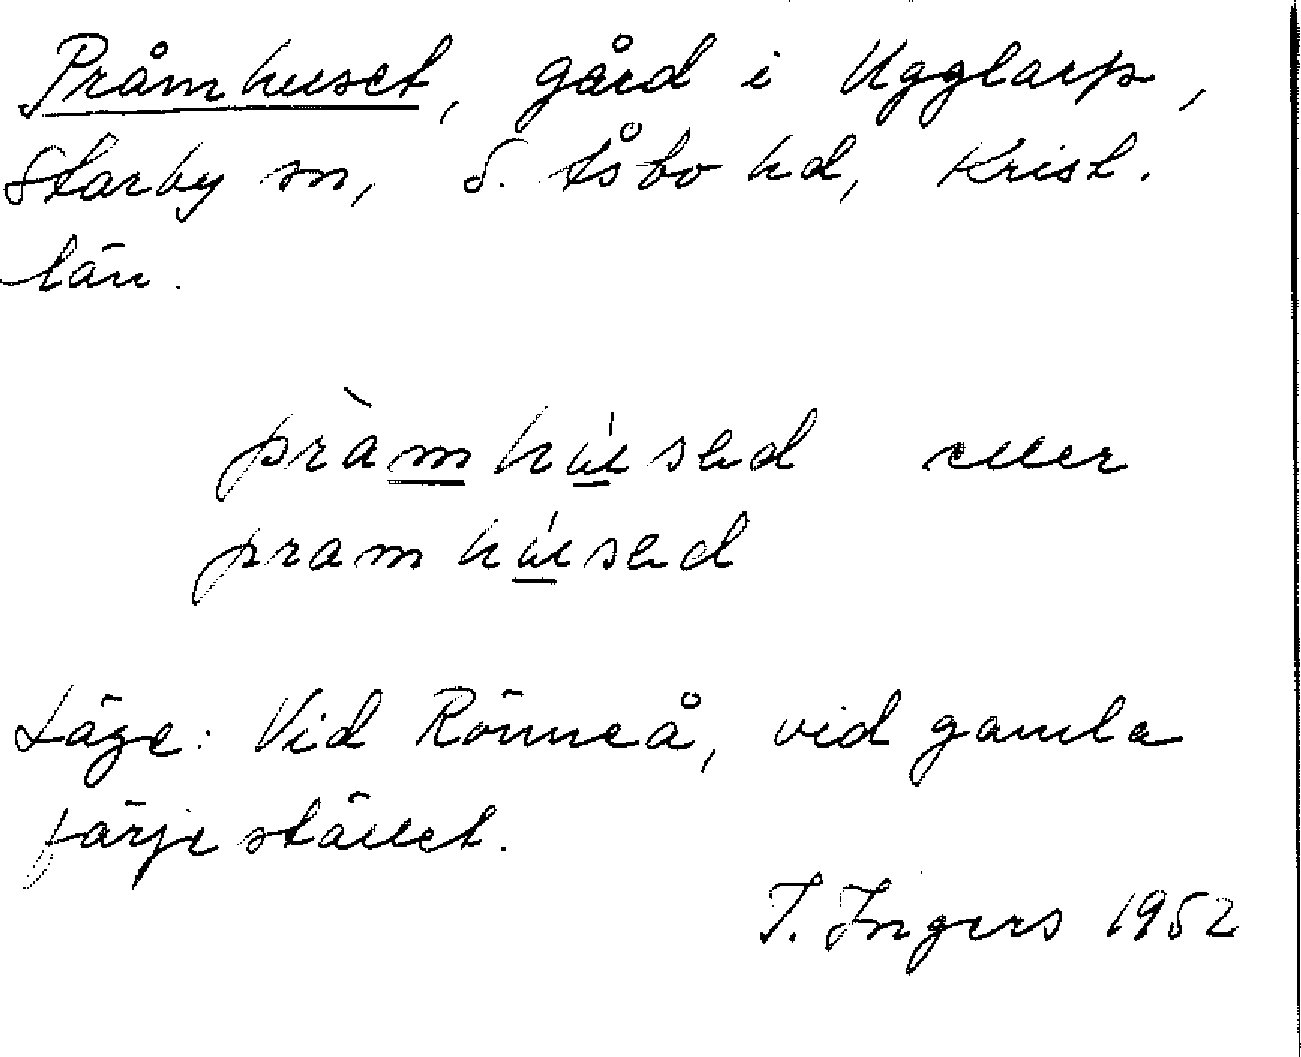 Pråmhuset, gård i Ugglarp,
Starby sn, S. Åsbo hd, Krist.
län.
pràmhúsəd eller
pramhúsəd
Läge: Vid Rönneå, vid gamla
färjestället.
I. Ingers 1952